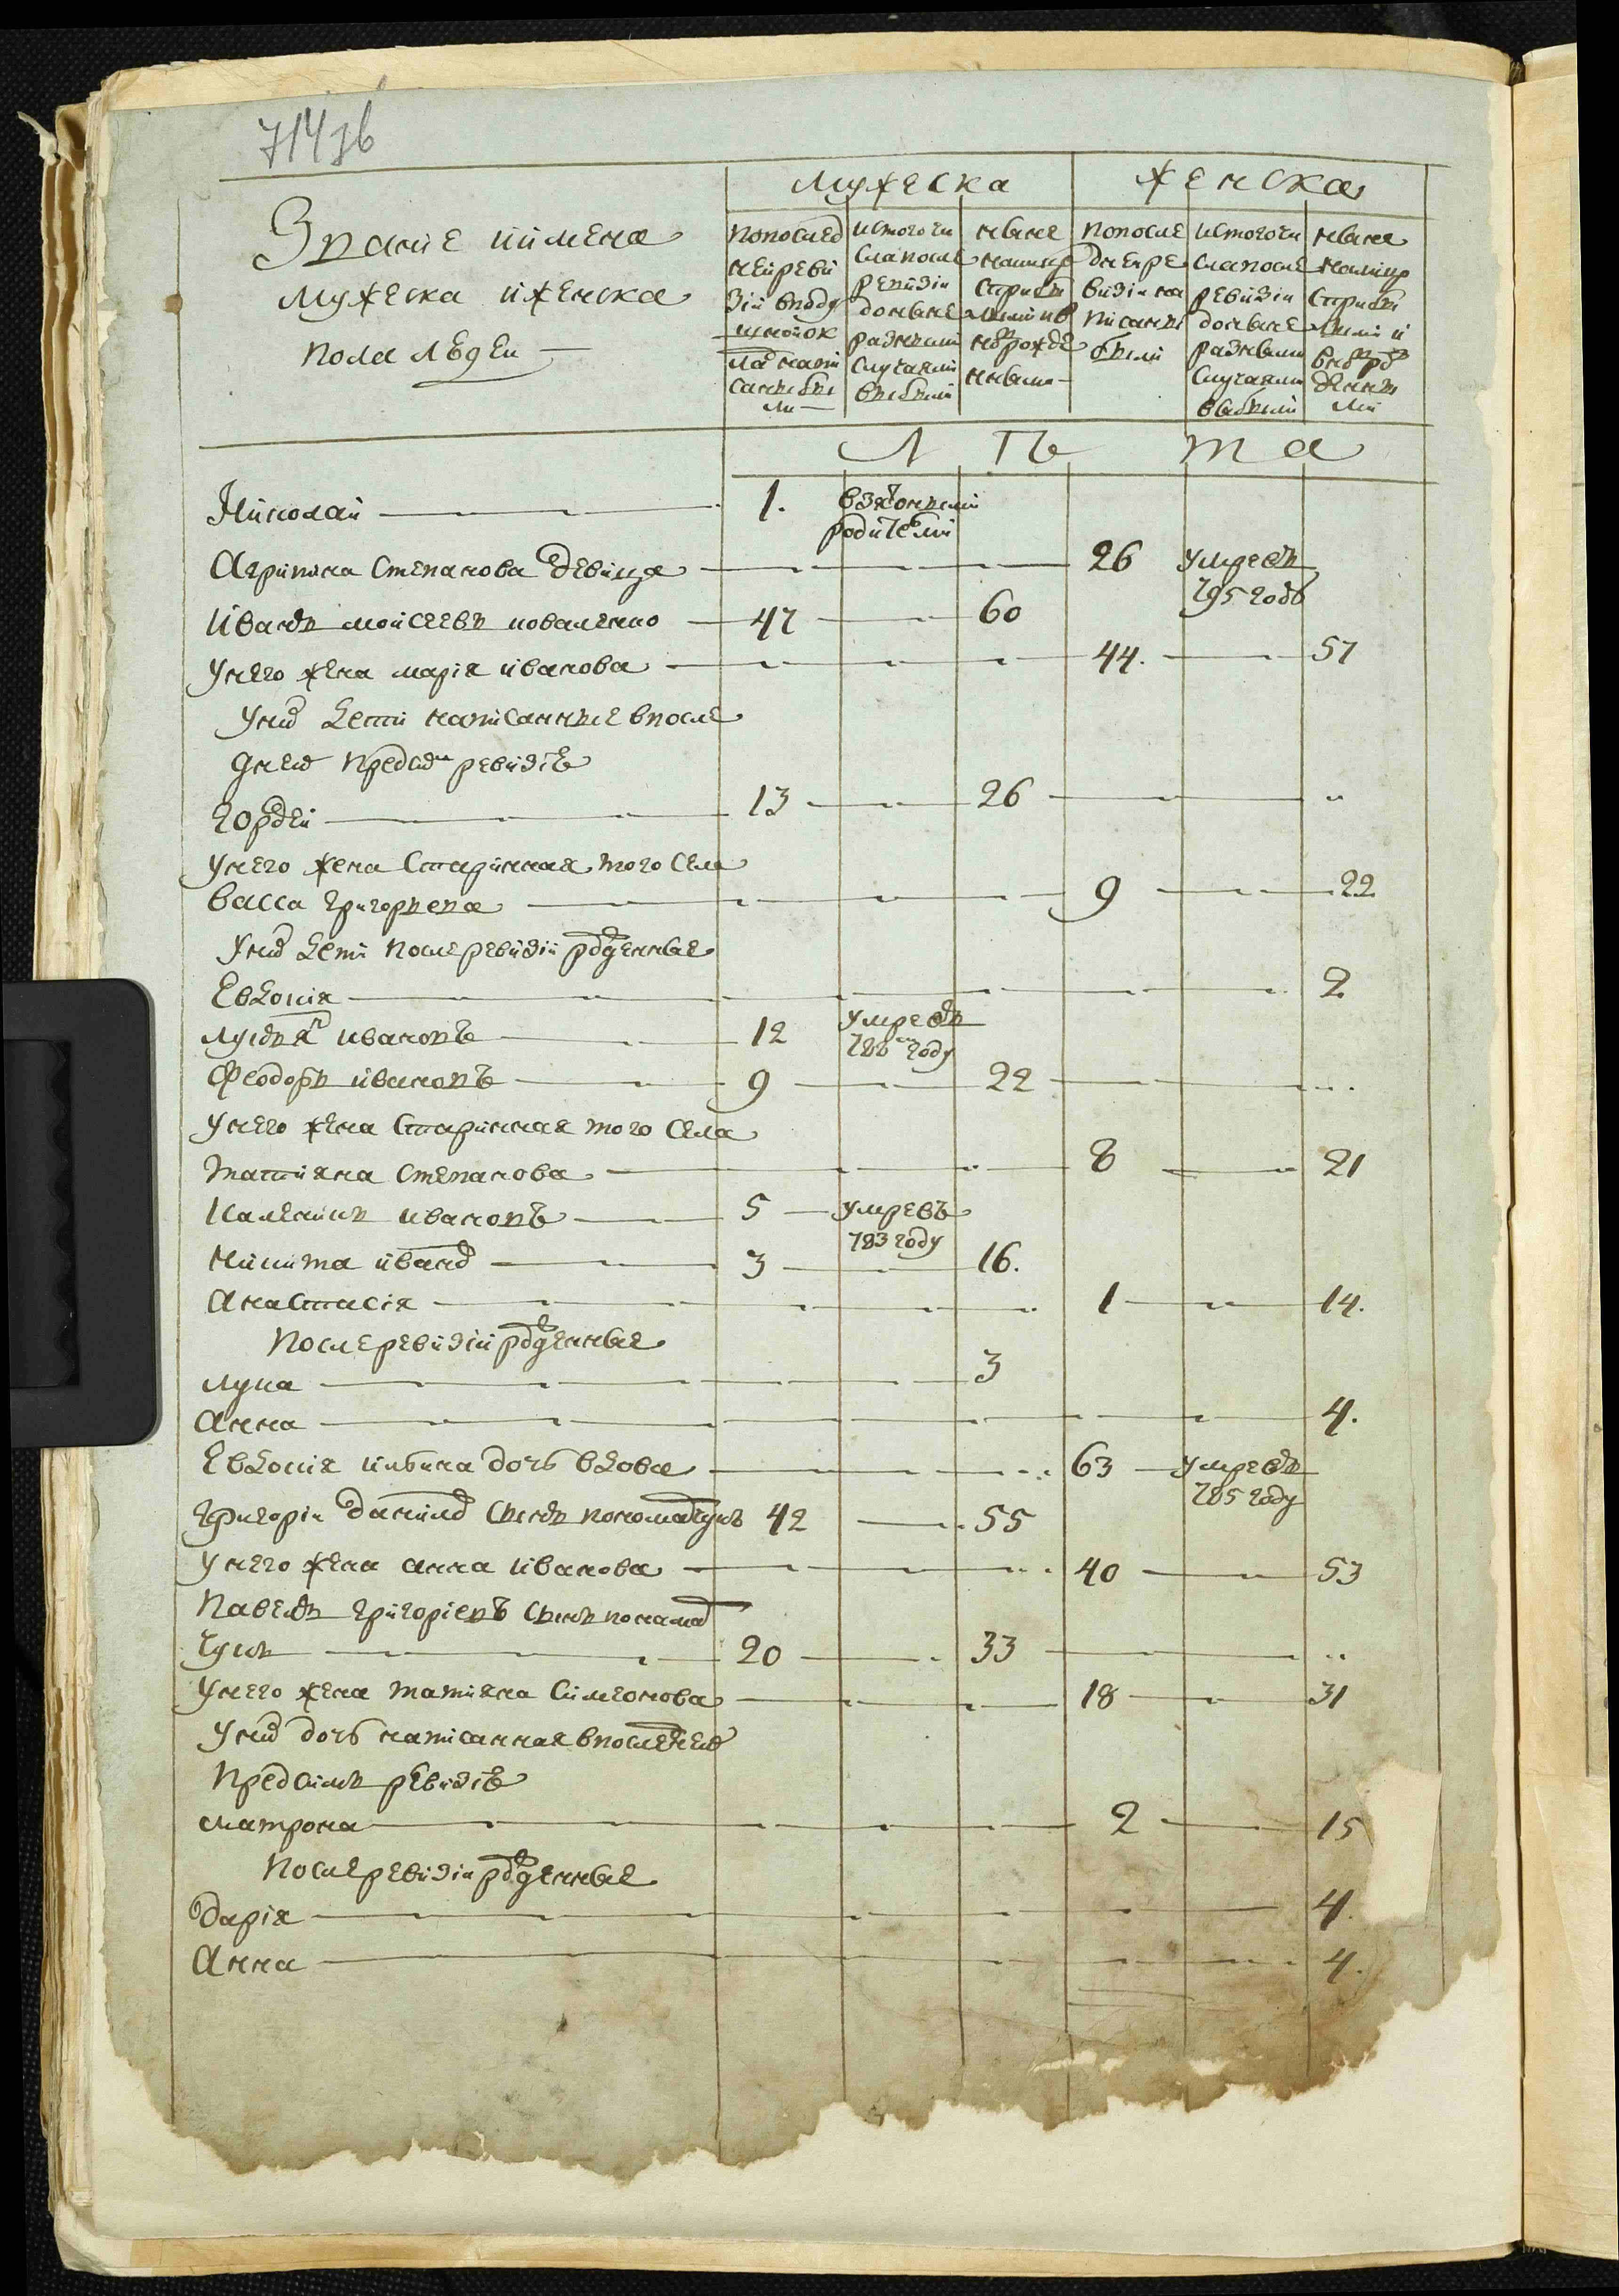 714зв
мужеска женска
Звание иимена
мужеска иженска
пола людеи
попослед
неиреви
зіи вподу
шнойок
ладнапи
саныбы
ли
истогочи
слапосле
ревизіи
доныне
разными
случаями
выбыли
ныне
налицо
старыхъ
попосле
днеире
визіи на
писаны
были
истогочи
слапосле
ревизіи
доныне
разными
случаями
выбыли
ныне
налицо
старыхъ
Л ѣ т а
Николаи 1. взятоными
родителми
Агрипина степанова девица 26 умре въ
795 годѣ
Иванъ моисеевъ коваленко 47 60
унего жена марія иванова 44. 57
уних дети написанные впосле
днеи предсим ревизіѣ
гордеи 13 26
унего жена старинная того села
васса григорьева 9 22
уних дети послеревизіи рожденные
Евдокия 2
лукьян ивановъ 12 умре въ
788 году
Феодоръ ивановъ 9 22
унего жена старинная того села
татияна степанова 8 21
Каленикъ ивановъ 5 умре въ
783 году
никита иванов 3 16.
анастасія 1 14.
послеревизіи рожденные
лука 3
анна 4.
Евдокия дочь вдова 63 умре въ
785 году
григоріи данилов сынъ 42 55
унего жена анна иванова 40 53
Павелъ григоріевъ сынъ
20 33
унего жена татияна симеонова 18 31
уних дочь написанная впоследнеи
предсимъ ревизіѣ
матрона 2 15
послеревизіи рожденные
дарія 4.
Анна 4.